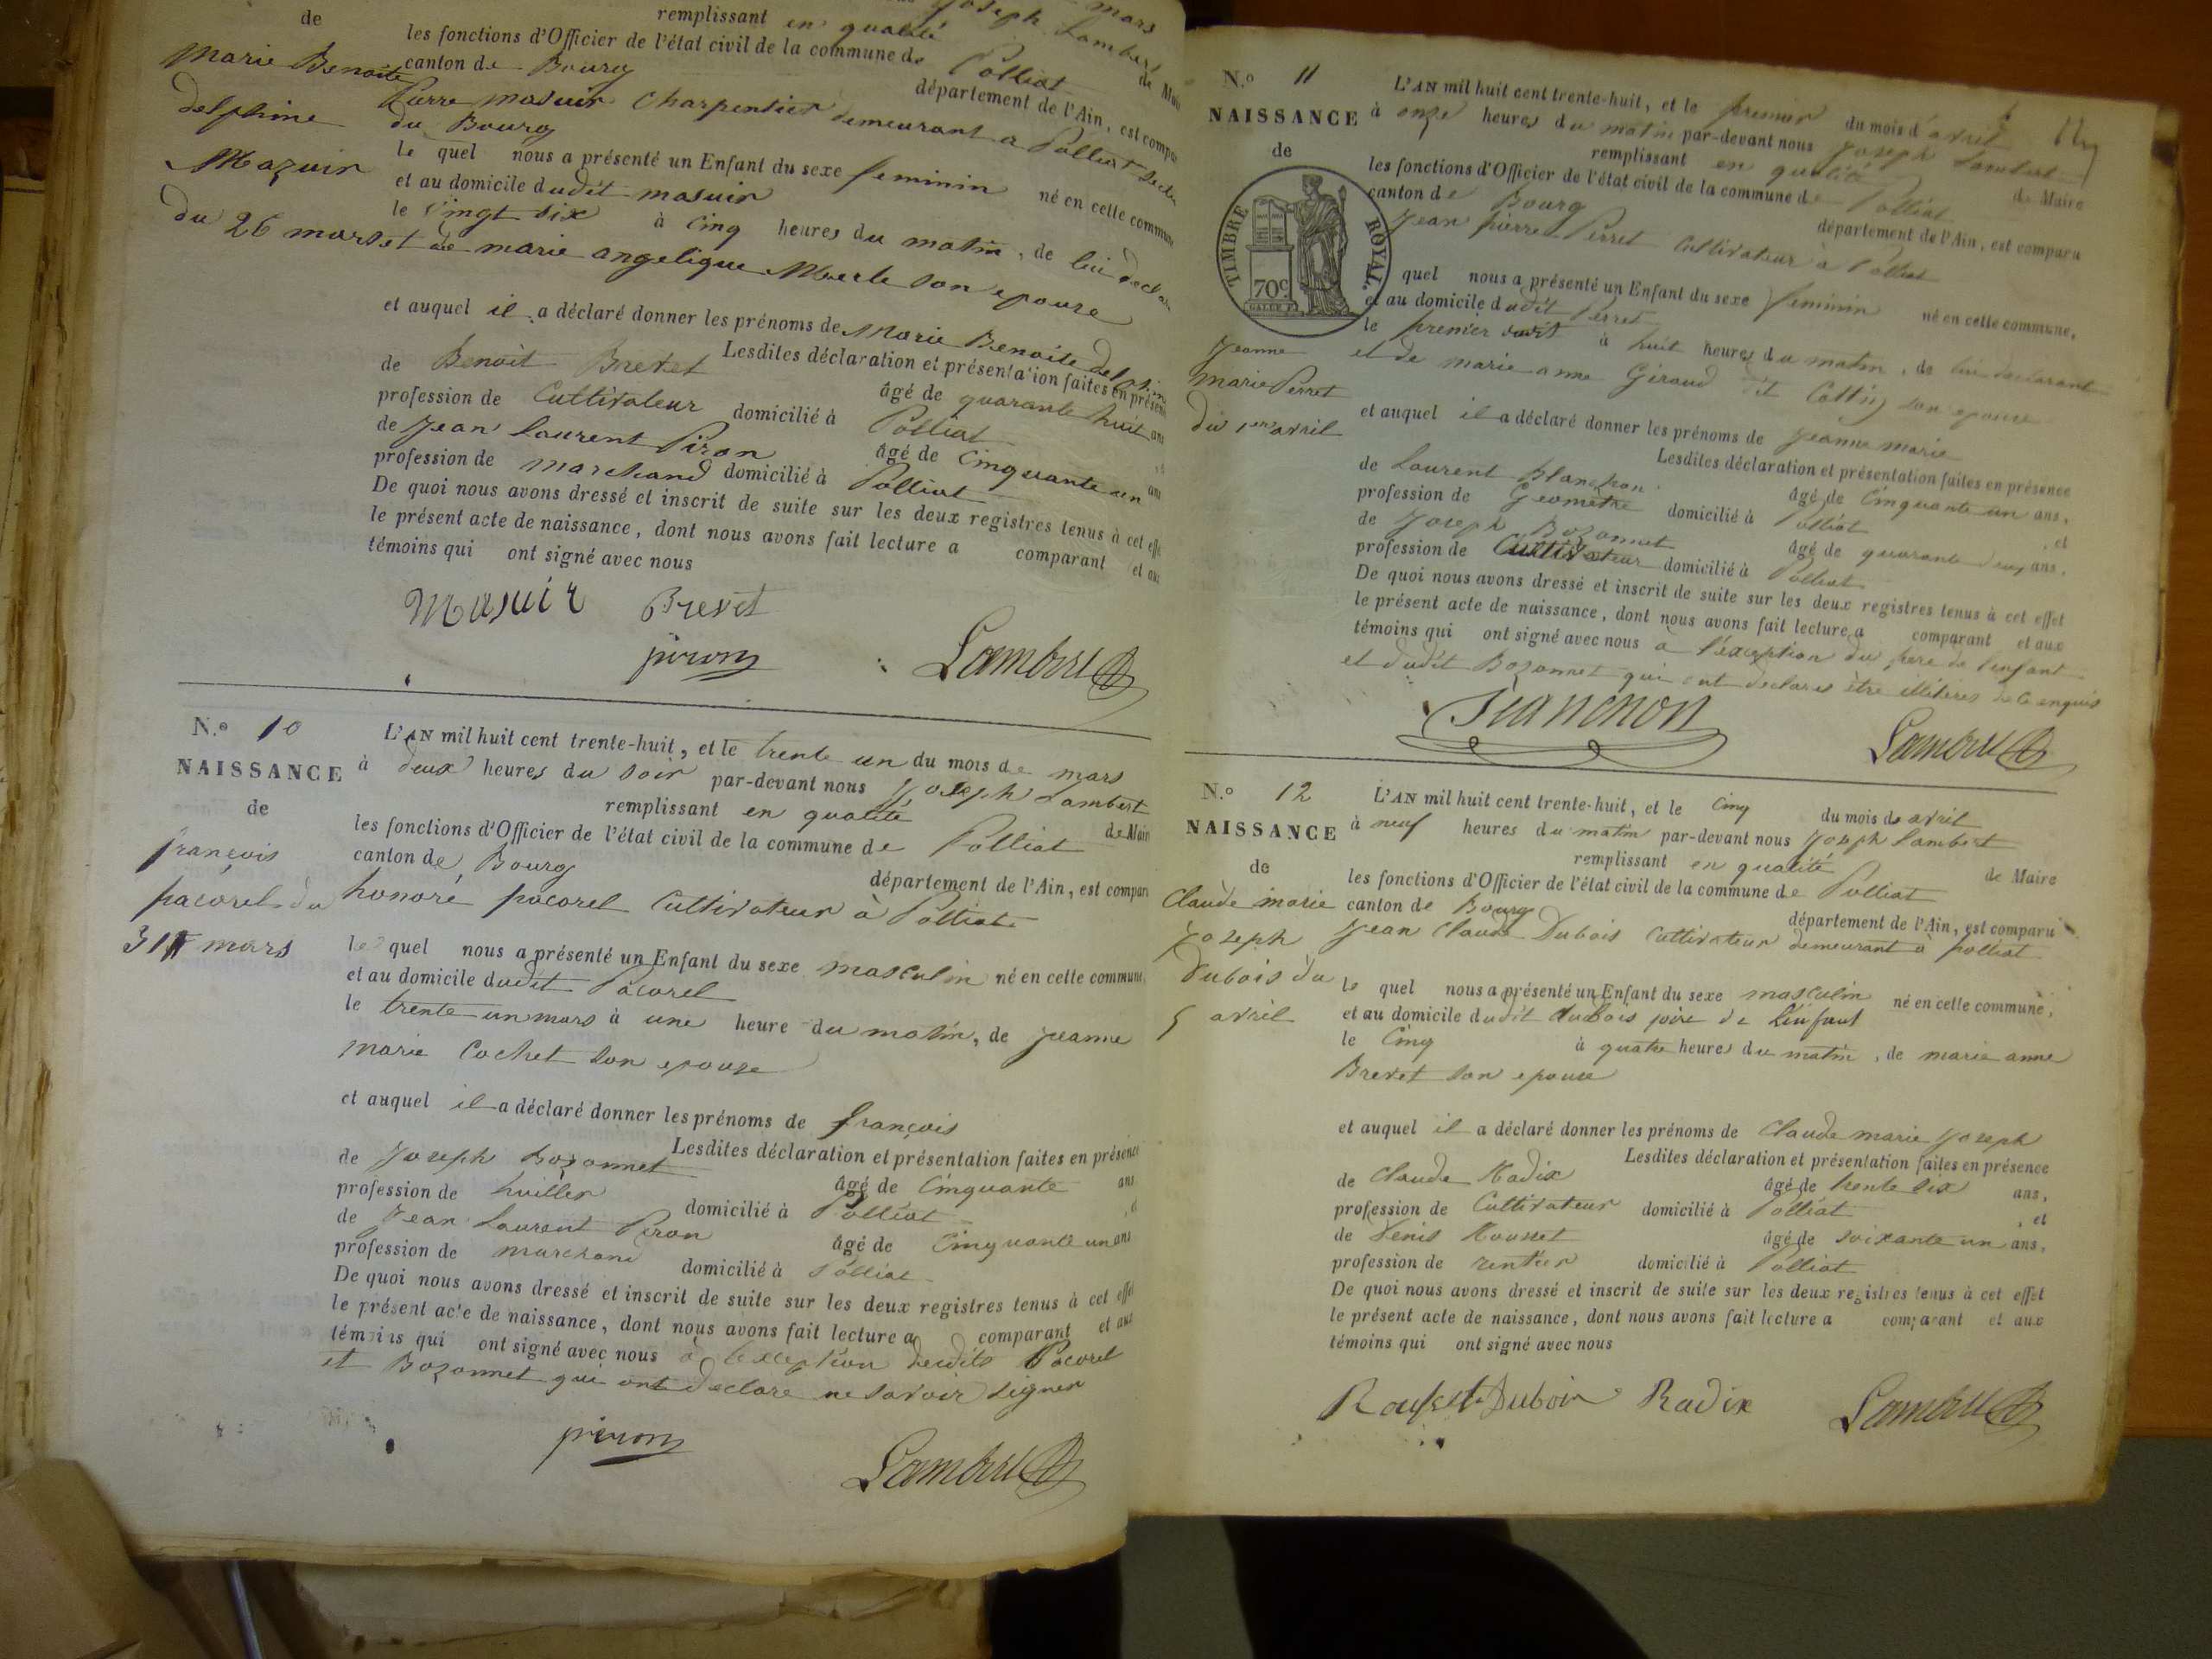 de
Marie Benoite
delphine
Mazuir
du 26 mars
Joseph Lambert
mars
remplissant en qualité
de Mai
les fonctions d'Officier de l'état civil de la commune de Polliat
canton de Bourg
département de l'Ain, est compa
Pierre masuir charpentier demeurant a Polliat
du Bourg
le quel nous a présenté un Enfant du sexe feminin né en cette commun
et au domicile dudit masuir
le vingt six à cinq heures du matin, de lui declar
et de marie angelique Merle son epouse
et auquel il a déclaré donner les prénoms de Marie Benoite delphine
Lesdites déclaration et présentation faites en présen
de Benoit Brevet âgé de quarante huit ans
profession de Cultivateur domicilié à Polliat
de Jean Laurent Piron âgé de cinquante un ans
profession de marchand domicilié à Polliat
De quoi nous avons dressé et inscrit de suite sur les deux registres tenus à cet effe
le présent acte de naissance, dont nous avons fait lecture a comparant et aux
témoins qui ont signé avec nous
Masuir Brevet
piron Lambert
N.o 10
NAISSANCE
de
françois
pacorel du
31 mars
L'AN mil huit cent trente-huit, et le trente un du mois de mars
à deux heures du soir par-devant nous Joseph Lambert
remplissant en qualité de Mair
les fonctions d'Officier de l'état civil de la commune de Polliat
canton de Bourg
département de l'Ain, est compar
honoré pacorel Cultivateur à Polliat
le quel nous a présenté un Enfant du sexe masculin né en cette commune
et au domicile dudit Pacorel
le trente un mars à une heure du matin, de jeanne
marie Cochet son epouse
et auquel il a déclaré donner les prénoms de françois
Lesdites déclaration et présentation faites en présence
de Joseph Bozonnet âgé de Cinquante ans
profession de huillier domicilié à Polliat
de Jean Laurent Piron âgé de Cinquante un ans
profession de marchand domicilié à Polliat
De quoi nous avons dressé et inscrit de suite sur les deux registres tenus à cet effet
le présent acte de naissance, dont nous avons fait lecture a comparant et aux
témoins qui ont signé avec nous à l'exception desdits Pacorel
et Bozonnet qui ont declare ne savoir signer
piron
Lambert
N.o 11
NAISSANCE
de
TIMBRE ROYAL.
70c.
Jeanne
Marie Perret
du 1er avril
L'AN mil huit cent trente-huit, et le premier du mois d'avril
à onze heures du matin par-devant nous Joseph Lambert
remplissant en qualité de Maire
les fonctions d'Officier de l'état civil de la commune de Polliat
canton de Bourg
département de l'Ain, est comparu
Jean pierre Perret Cultivateur à Polliat
quel nous a présenté un Enfant du sexe feminin né en cette commune,
et au domicile dudit Perret
le premier avril à huit heures du matin, de lui declarant
et de marie anne Giraud dit Cottin son epouse
et auquel il a déclaré donner les prénoms de jeanne marie
Lesdites déclaration et présentation faites en présence
de Laurent Blanchon âgé de Cinquante un ans,
profession de Geometre domicilié à Polliat , et
de Joseph Bozonnet âgé de quarante deux ans,
profession de Cultivateur domicilié à Polliat
De quoi nous avons dressé et inscrit de suite sur les deux registres tenus à cet effet
le présent acte de naissance, dont nous avons fait lecture a comparant et aux
témoins qui ont signé avec nous à l'exception du pere de l'enfant
et dudit Bozonnet qui ont declarés être illiteres de ce enquis
Blanchon
Lambert
N.o 12
NAISSANCE
de
Claude marie
Joseph
Dubois du
5 avril
L'AN mil huit cent trente-huit, et le cinq du mois de avril
à neuf heures du matin par-devant nous Joseph Lambert
remplissant en qualité de Maire
les fonctions d'Officier de l'état civil de la commune de Polliat
canton de Bourg
département de l'Ain, est comparu
Jean Claude Dubois Cultivateur demeurant à polliat
le quel nous a présenté un Enfant du sexe masculin né en cette commune,
et au domicile dudit dubois père de l'enfant
le Cinq à quatre heures du matin, de marie anne
Brevet son epouse
et auquel il a déclaré donner les prénoms de Claude marie Joseph
Lesdites déclaration et présentation faites en présence
de Claude Radix âgé de trente six ans,
profession de Cultivateur domicilié à Polliat , et
de Denis Rousset âgé de soixante un ans,
profession de rentier domicilié à Polliat
De quoi nous avons dressé et inscrit de suite sur les deux registres tenus à cet effet
le présent acte de naissance, dont nous avons fait lecture a comparant et aux
témoins qui ont signé avec nous
Rousset Dubois Radix Lambert